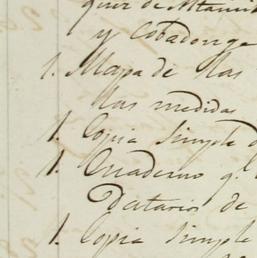 quer de Altami
y Cobadonga
1. Mapa de las
las medidas
1. Copia simple d
1. Cuaderno q.e
Datarios de
1. Copia simple